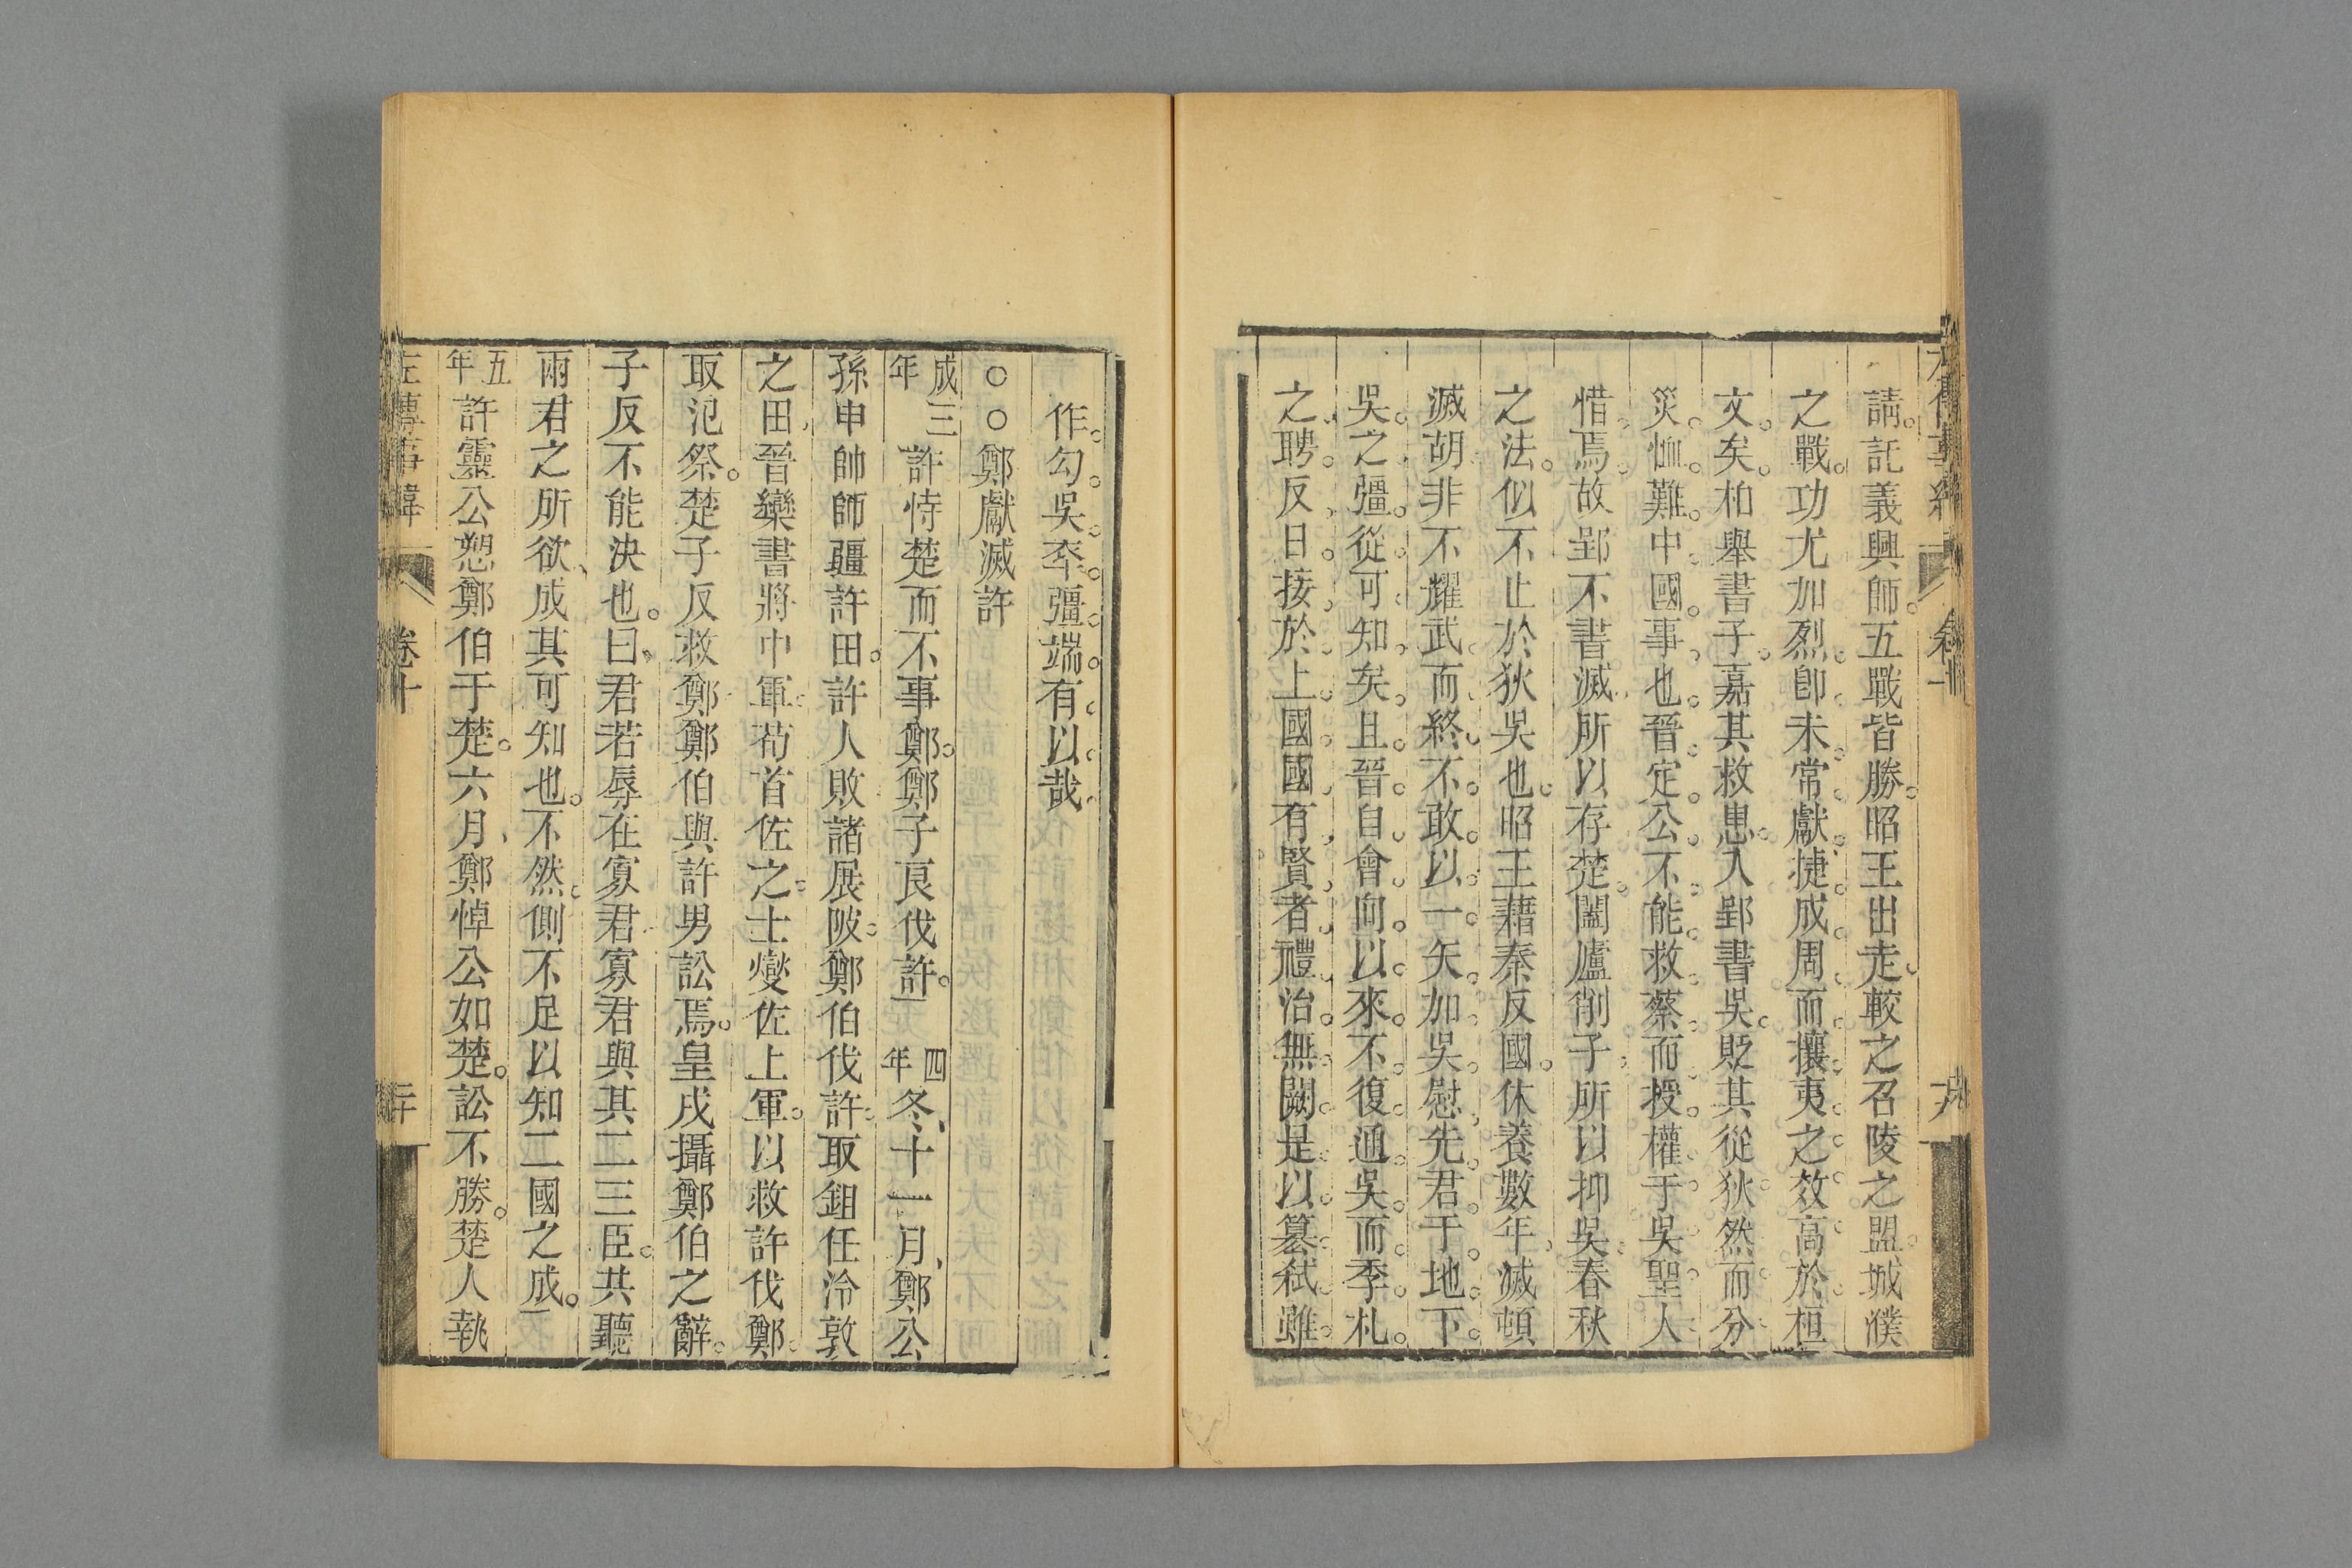 請託義興師五戰皆勝昭王出走較之召陵之盟城濮
之戰功尤加烈卽未常獻捷成周而攘夷之效高於桓
文矣柏舉書子嘉其救患入郢書吳貶其從狄然而分
災恤難中國事也晉定公不能救蔡而授權于吳聖人
惜焉故郢不書滅所以存楚闔廬削子所以抑吳春秋
之法似不止於狄吳也昭王藉秦反國休養數年滅頓
滅胡非不耀武而終不敢以一矢加吳慰先君于地下
吳之彊從可知矣且晉自會向以來不復通吳而季札
之聘反日接於上國國有賢者禮治無闕是以篡弑雖
作勾吳卒彊端有以哉
○○鄭獻滅許
成三年許恃楚而不事鄭鄭子良伐許四年冬十一月鄭公
孫申帥師疆許田許人敗諸展陂鄭伯伐許取鉏任泠敦
之田晉欒書將中軍荀首佐之士燮佐上軍以救許伐鄭
取氾祭楚子反救鄭鄭伯與許男訟焉皇戌攝鄭伯之辭
子反不能決也曰君若辱在寡君寡君與其二三臣共聽
兩君之所欲成其可知也不然側不足以知二國之成
五年許靈公愬鄭伯于楚六月鄭悼公如楚訟不勝楚人執
左傳事緯 卷十